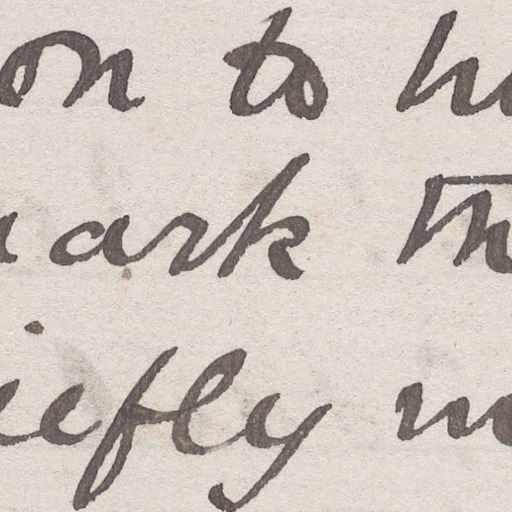 on to h
ark th
iefly m